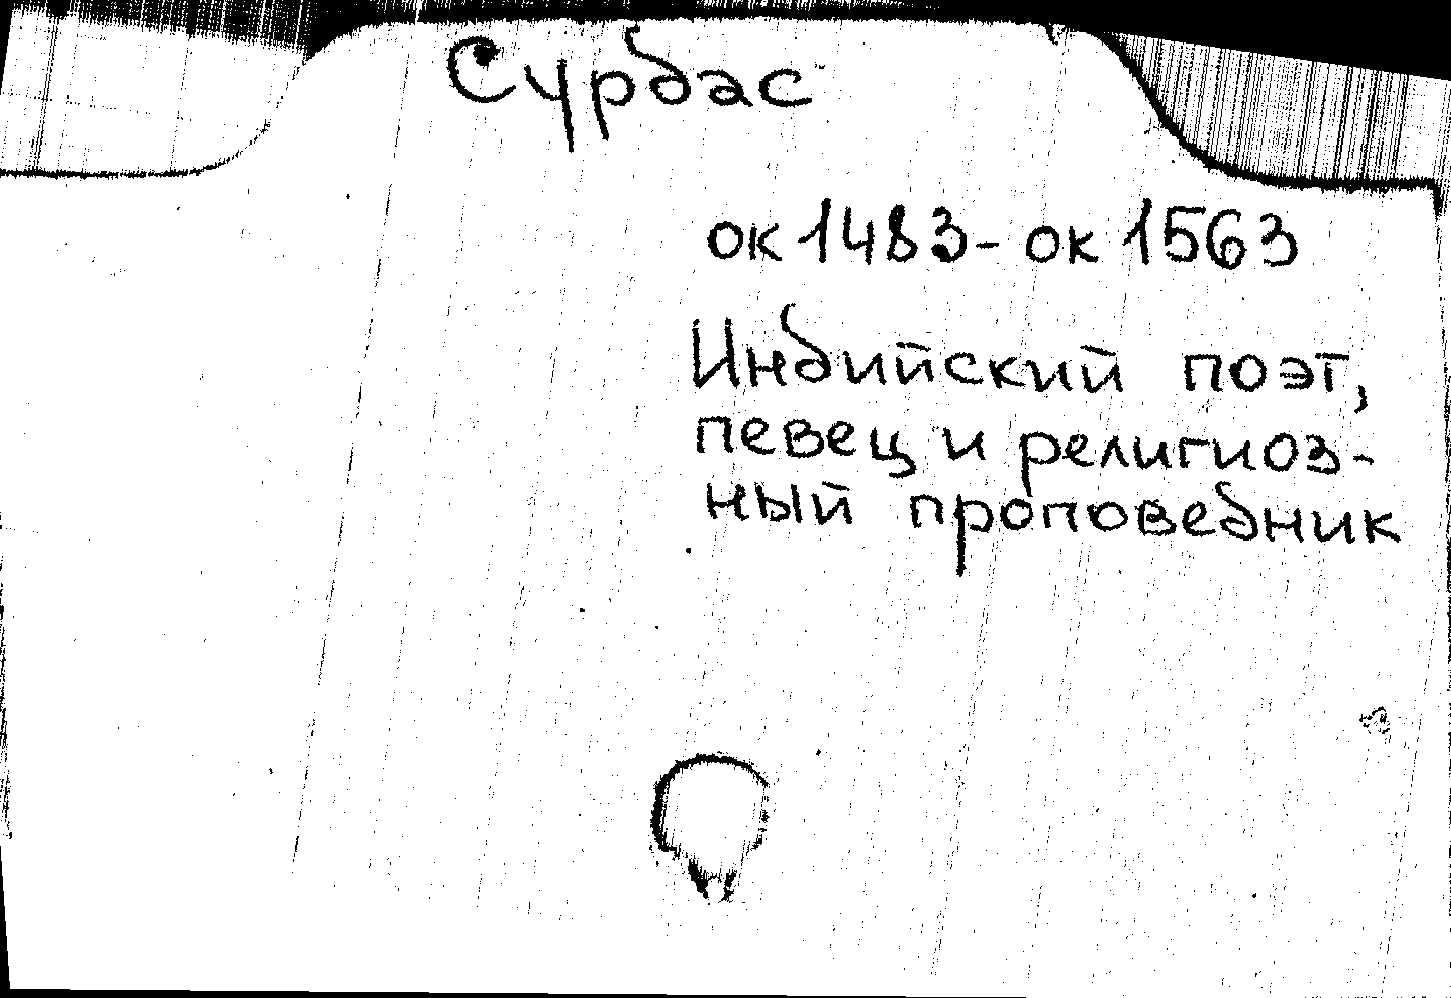 Сурдас
ок 1483 - ок 1563
Индийский поэт,
певец и религиоз-
ный проповедник